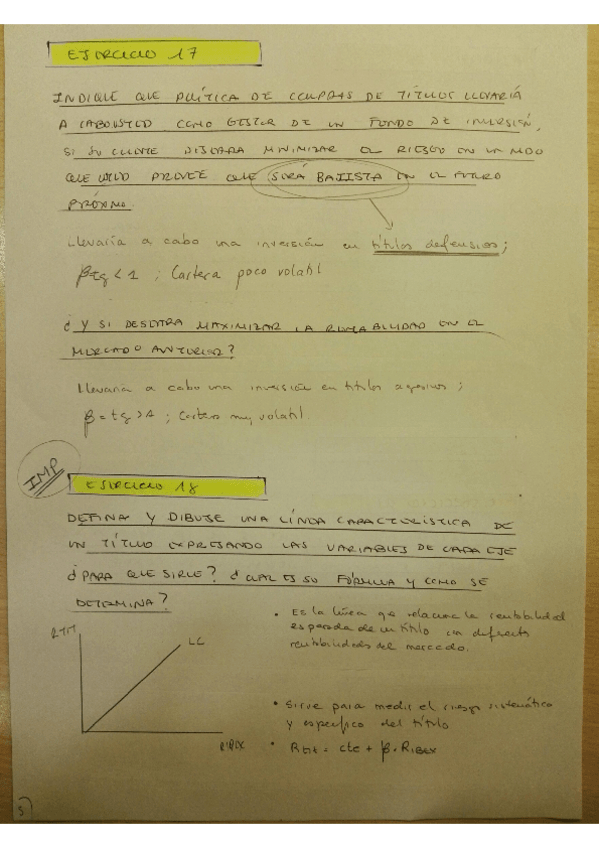 EJERCICIO 17
INDIQUE QUE POLÍTICA DE COMPRAS DE TÍTULOS LLEVARÍA
A CABO USTED COMO GESTOR DE UN FONDO DE INVERSIÓN,
SI SU CLIENTE DESEARA MINIMIZAR EL RIESGO EN UN MDO
QUE UD PREVEÉ QUE SERÁ BAJISTA EN EL FUTURO
PRÓXIMO.
Llevaría a cabo una inversión en títulos defensivos;
β=tg < 1 ; Cartera poco volatil
¿Y SI DESEARA MAXIMIZAR LA RENTABILIDAD EN EL
MERCADO ANTERIOR?
Llevaría a cabo una inversión en títulos agresivos;
β = tg > 1 ; Cartera muy volatil.
IMP
EJERCICIO 18
DEFINA Y DIBUJE UNA LÍNEA CARACTERÍSTICA DE
UN TÍTULO EXPRESANDO LAS VARIABLES DE CADA EJE
¿PARA QUE SIRVE? ¿CUAL ES SU FÓRMULA Y COMO SE
DETERMINA?
RTIT
LC
RIBEX
• Es la línea que relaciona la rentabilidad
esperada de un título con diferentes
rentabilidades del mercado.
• Sirve para medir el riesgo sistemático
y específico del título
• Rtit = cte + β · RIBEX
5